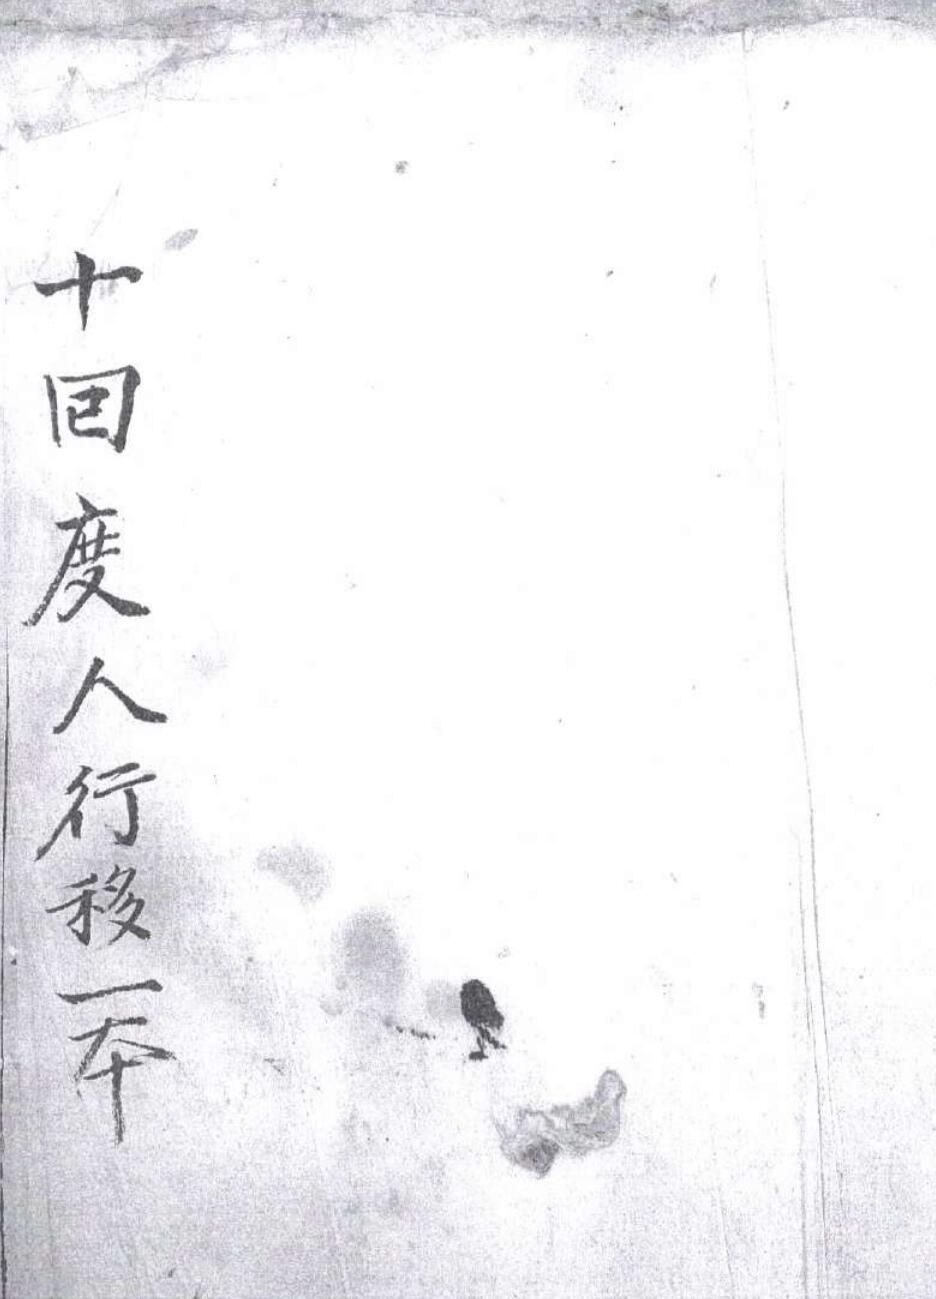 十囬度人行移一本